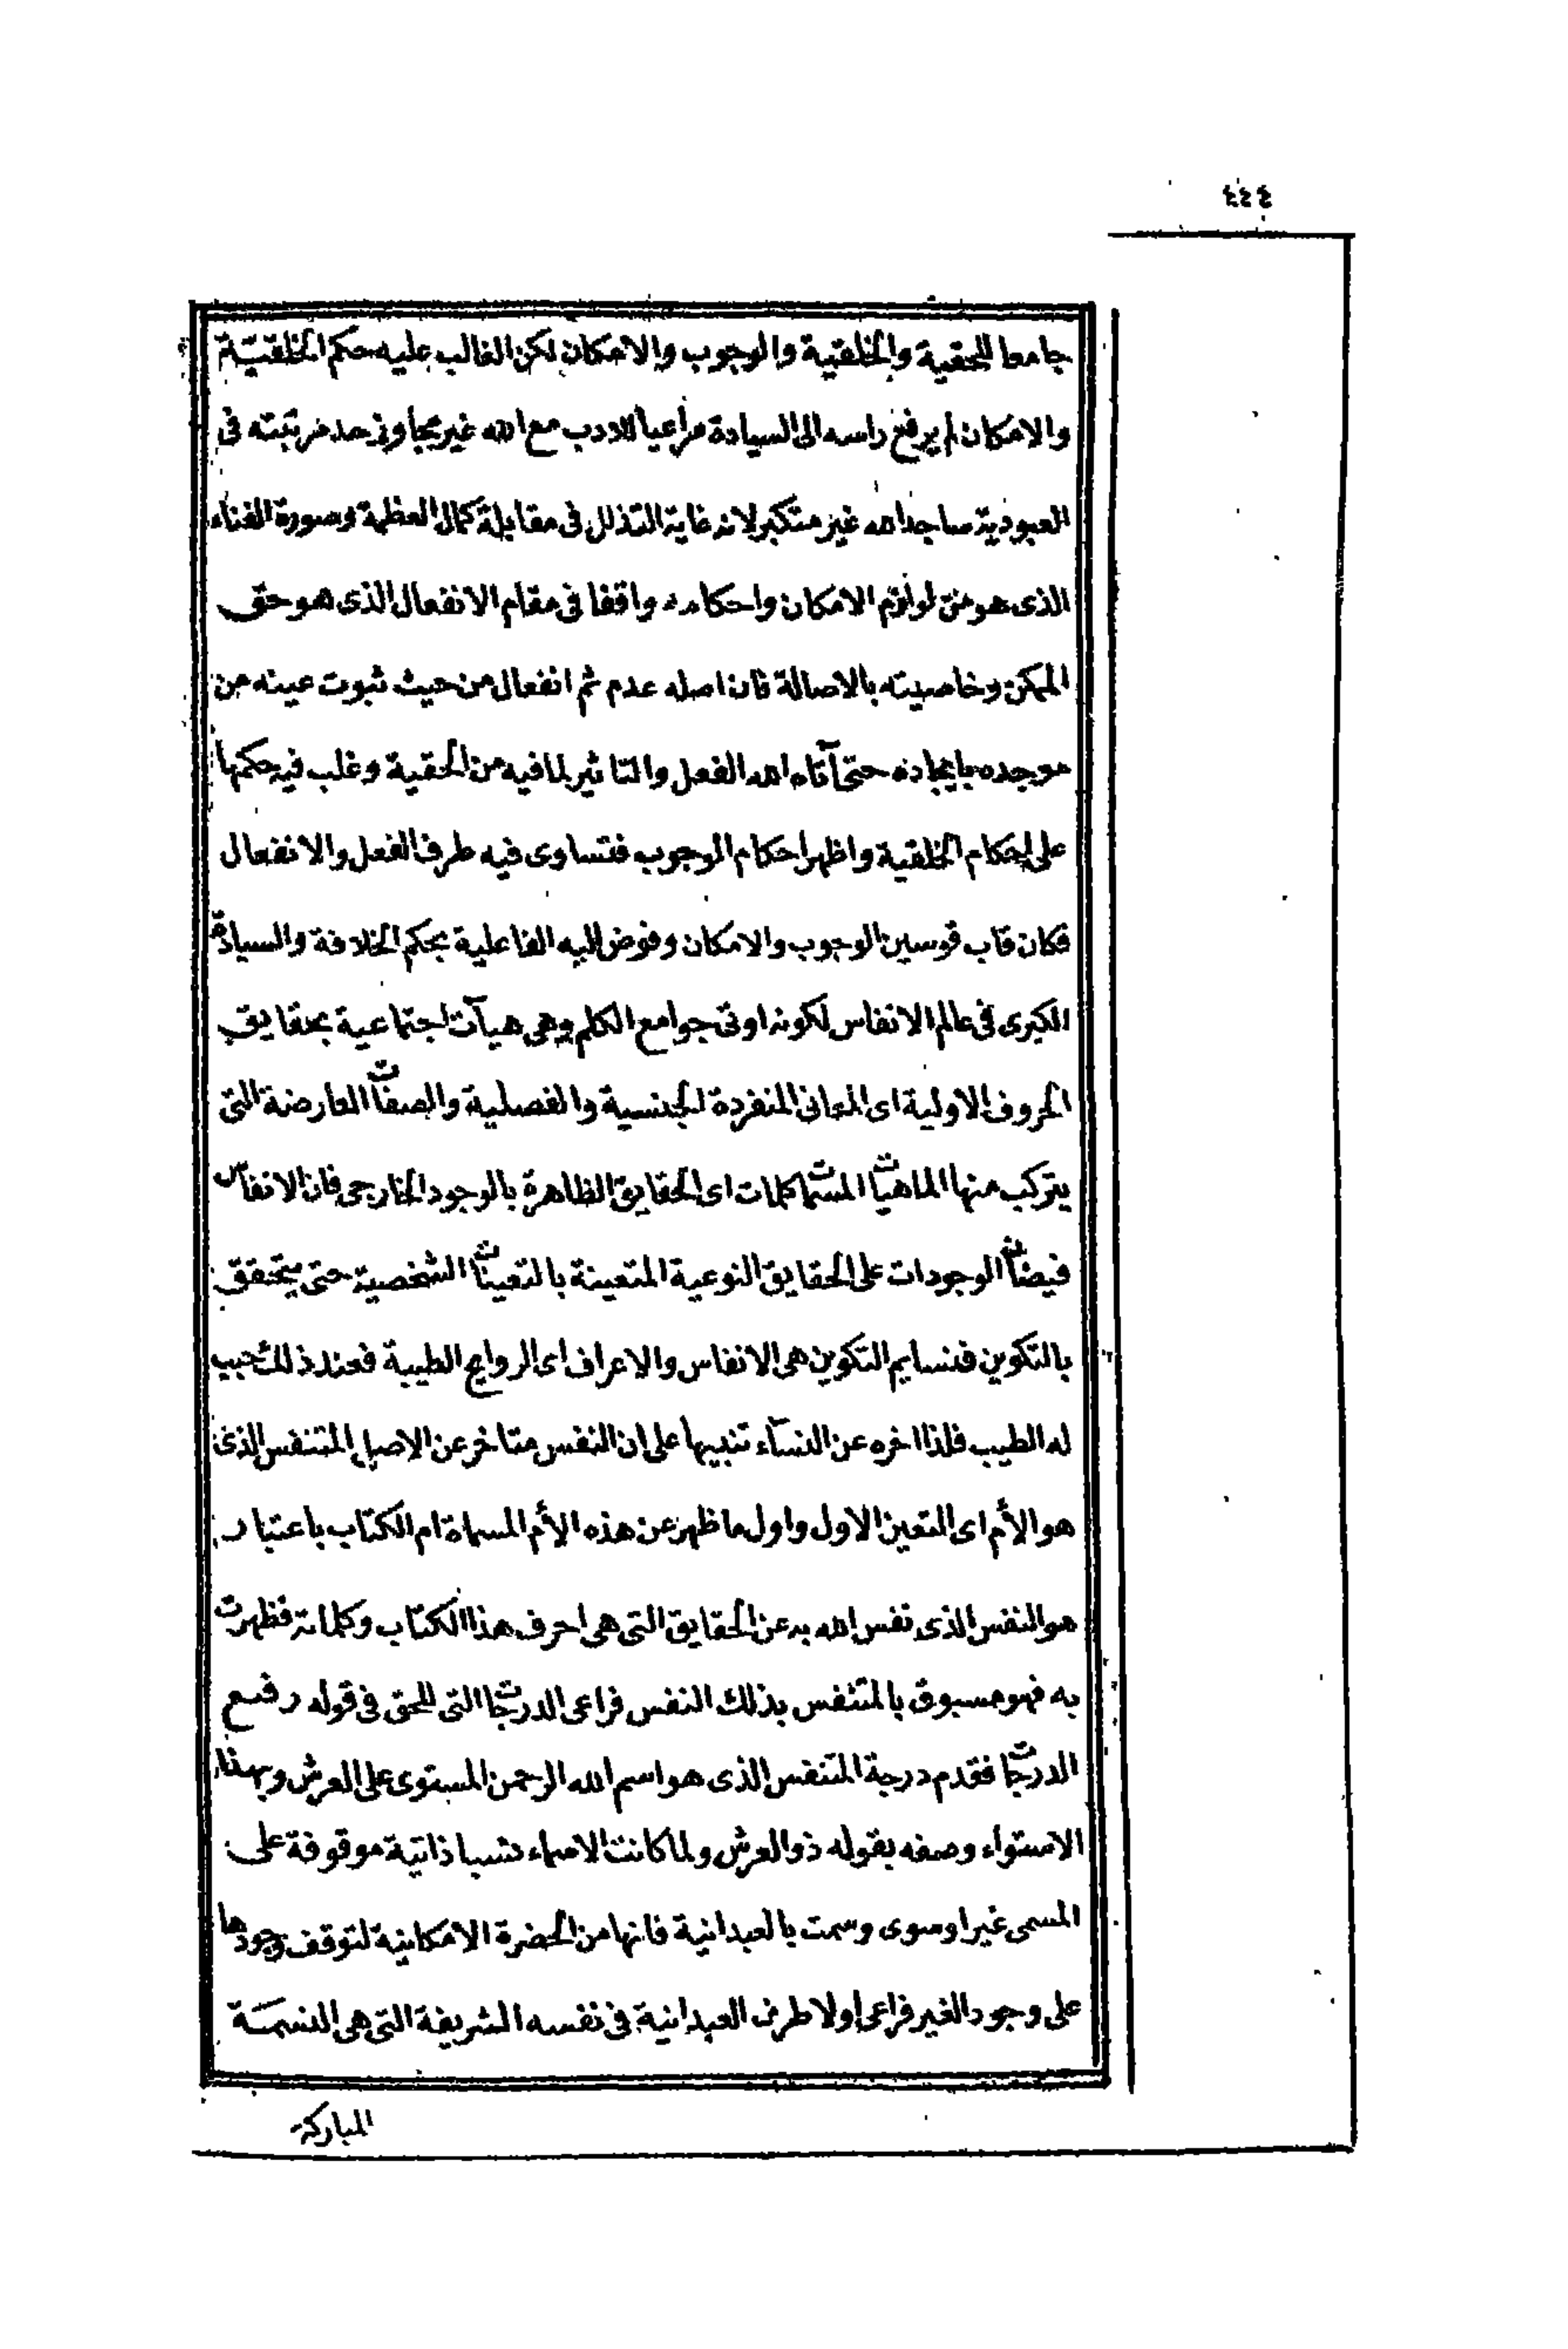 ٤٤٤
جامعا للحقية والخلقية والوجوب والامكان لكن الغالب عليه حكم الخلقيّة
والامكان لم يرفع راسه الى السيادة مراعيا للادب مع الله غير مجاوز حد مرتبته فى
العبودية ساجدا لله غير متكبر لانه غاية التذلل فى مقابلة كمال العظمة وصورة الفناء
الذى هو من لوازم الامكان واحكامه واقفا فى مقام الانفعال الذى هو حق
الممكن وخاصيته بالاصالة فان اصله عدم ثم انفعال من حيث ثبوت عينه من
موجده بايجاده حتى آتاه الله الفعل والتاثير لما فيه من الحقية وغلب فيه حكمها
على احكام الخلقية واظهر احكام الوجوب فتساوى فيه طرف الفعل والانفعال
فكان قاب قوسين الوجوب والامكان وفوض اليه الفاعلية بحكم الخلافة والسيادة
الكبرى فى عالم الانفاس لكونه اوتى جوامع الكلم وهى هيآت اجتماعية بحقايق
الحروف الاولية اى المعانى المنفردة الجنسية والفصلية والصفات العارضة التى
يتركب منها الماهيات المسماة كلمات اى الحقايق الظاهرة بالوجود الخارجى فان الانفاس
فيضات الوجودات على الحقايق النوعية المتعينة بالتعينات الشخصية حتى يتحقق
بالتكوين فنسايم التكوين هى الانفاس والاعراف اى الروايح الطيبة فعند ذلك حبب
له الطيب فلذا اخره عن النسآء تنبيها على ان النفس متاخر عن الاصل المتنفس الذى
هو الأم اى التعين الاول واول ما ظهر عن هذه الأم المسماة ام الكتاب باعتبار
هو النفس الذى نفس الله به عن الحقايق التى هى احرف هذا الكتاب وكلماته فظهرت
به فهو مسبوق بالمتنفس بذلك النفس فراعى الدرجات التى للحق فى قوله رفيع
الدرجات فقدم درجة المتنفس الذى هو اسم الله الرحمن المستوى على العرش وبهذا
الاستواء وصفه بقوله ذو العرش ولما كانت الاسماء نسبا ذاتية موقوفة على
المسمى غيرا وسوى وسمت بالعبدانية فانها من الحضرة الامكانية لتوقف وجودها
على وجود الغير فراعى اولا طرف العبدانية فى نفسه الشريفة التى هى النسمَة
المباركة